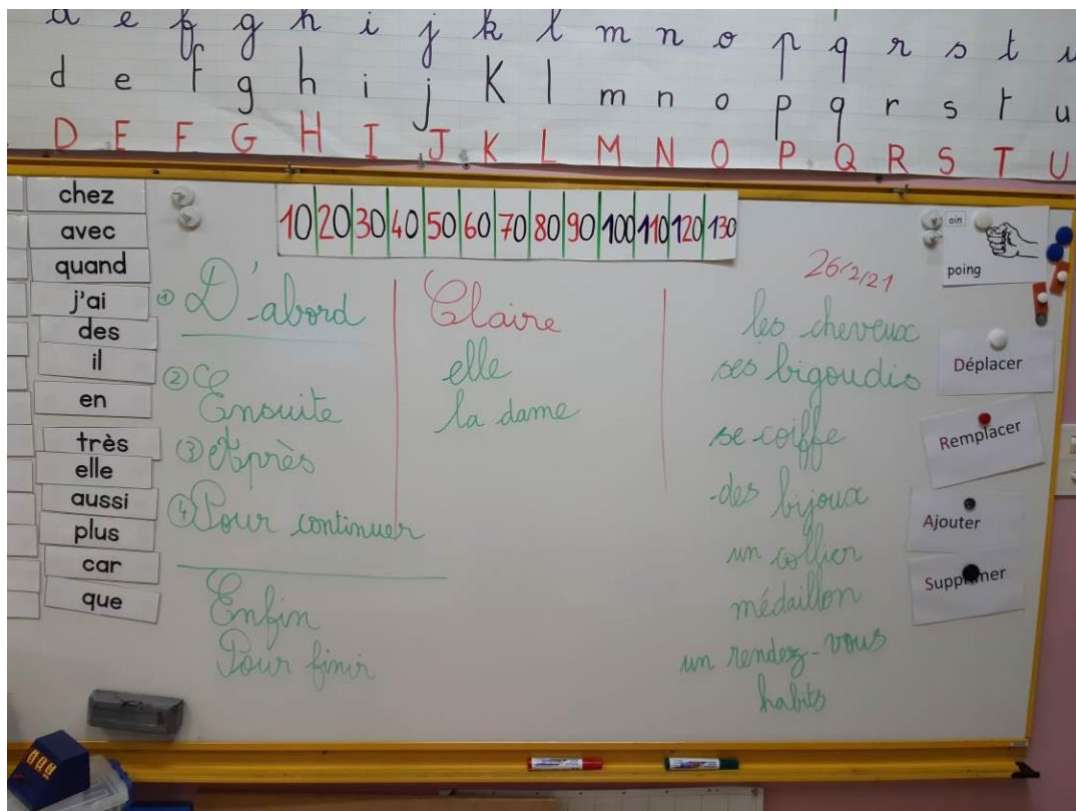 d e f g h i j k l m n o p q r s t u
d e f g h i j K l m n o p q r s t u
D E F G H I J K L M N O P Q R S T U
chez
avec
quand
j'ai
des
il
en
très
elle
aussi
plus
car
que
10 20 30 40 50 60 70 80 90 100 110 120 130
① D'abord
② Ensuite
③ Après
④ Pour continuer
Enfin
Pour finir
Claire
elle
la dame
26/2/21
les cheveux
ses bigoudis
se coiffe
des bijoux
un collier
médaillon
un rendez-vous
habits
oin
poing
Déplacer
Remplacer
Ajouter
Supprimer